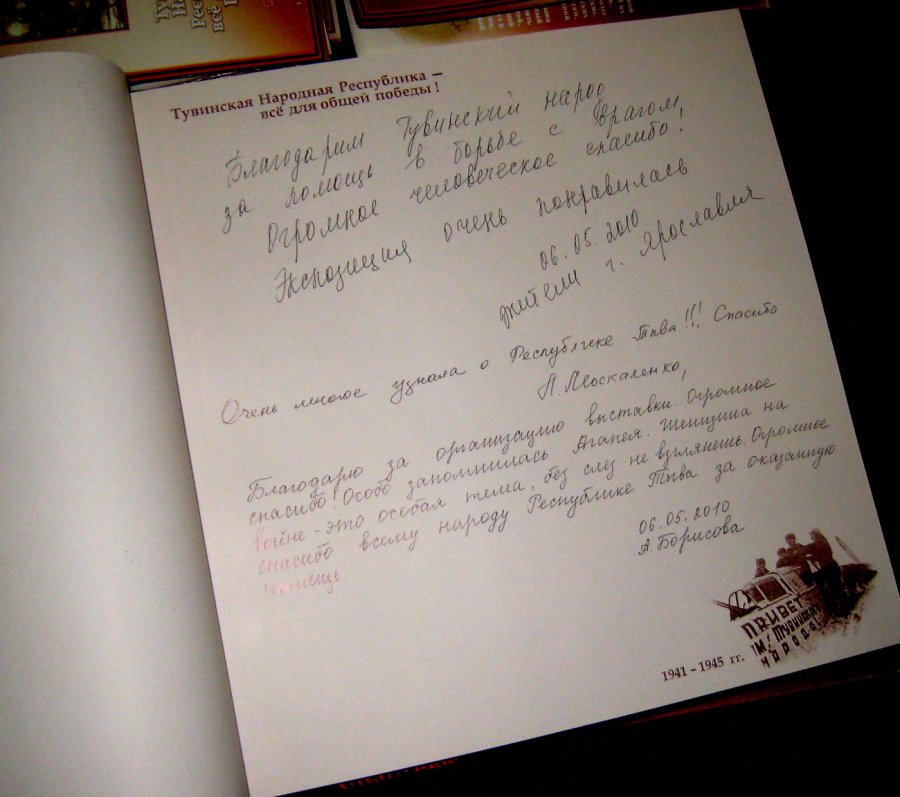 Тувинская Народная Республика –
всё для общей победы!
Благодарим Тувинский народ
за помощь в борьбе с врагом,
Огромное человеческое спасибо!
Экспозиция очень понравилась
06.05.2010
жители г. Ярославля
Очень многое узнала о Республике Тыва!!! Спасибо
Л. Москаленко,
Благодарю за организацию выставки. Огромное
спасибо! Особо запомнилась Аганея. Женщина на
войне – это особая тема, без слез не взглянешь. Огромное
спасибо всему народу Республике Тыва за оказанную
помощь
06.05.2010
А. Борисова
ПРИВЕТ
Тувинск
народа
1941 – 1945 гг.